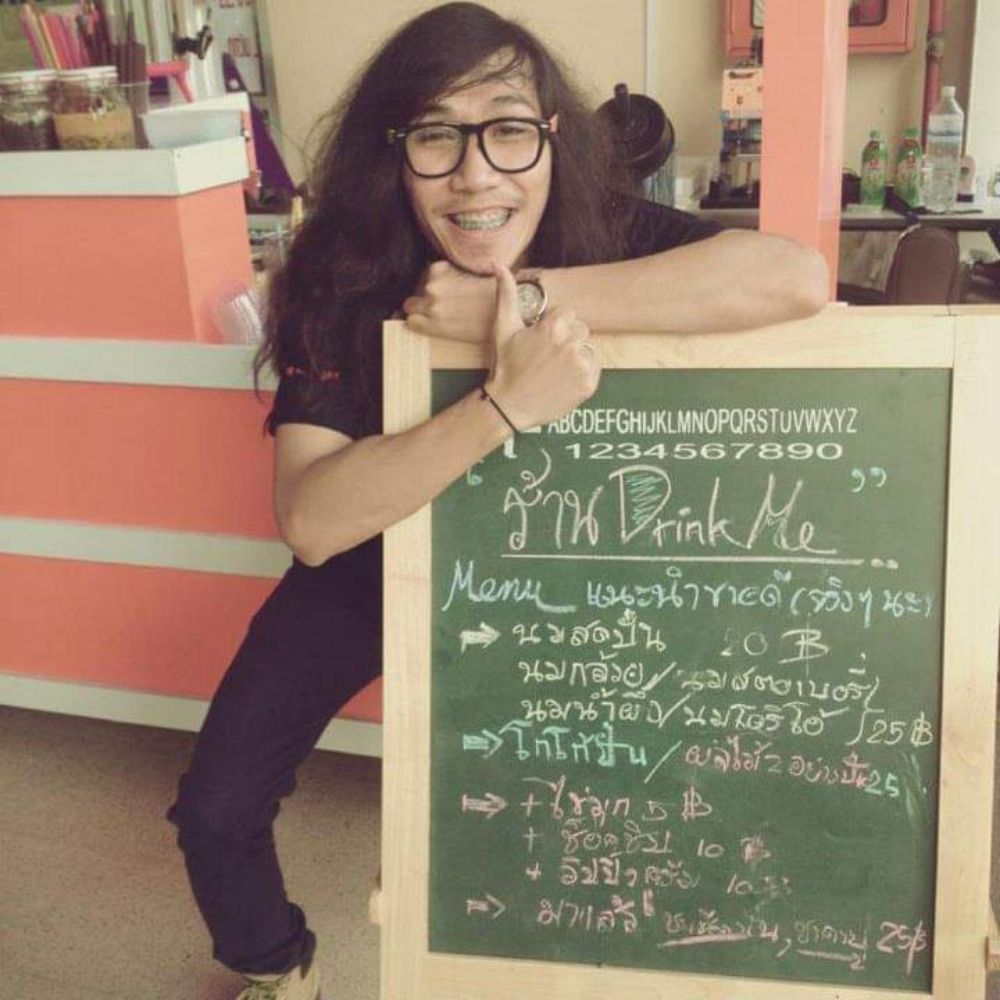 ABCDEFGHIJKLMNOPQRSTUVWXYZ
1234567890
" ร้าน Drink Me "
Menu แนะนำขายดี (จริงๆ นะ)
นมสดปั่น 20 ฿
นมกล้วย / นมสตอเบอรี่ /
นมน้ำผึ้ง / นมโอริโอ้ 25 ฿
โกโก้ปั่น / ผลไม้ 2 อย่างปั่น 25
+ ไข่มุก 5 ฿
+ ช็อคชิป 10 ฿
+ วิปปิ้งครีม 10 ฿
มาแล้ว 25 ฿